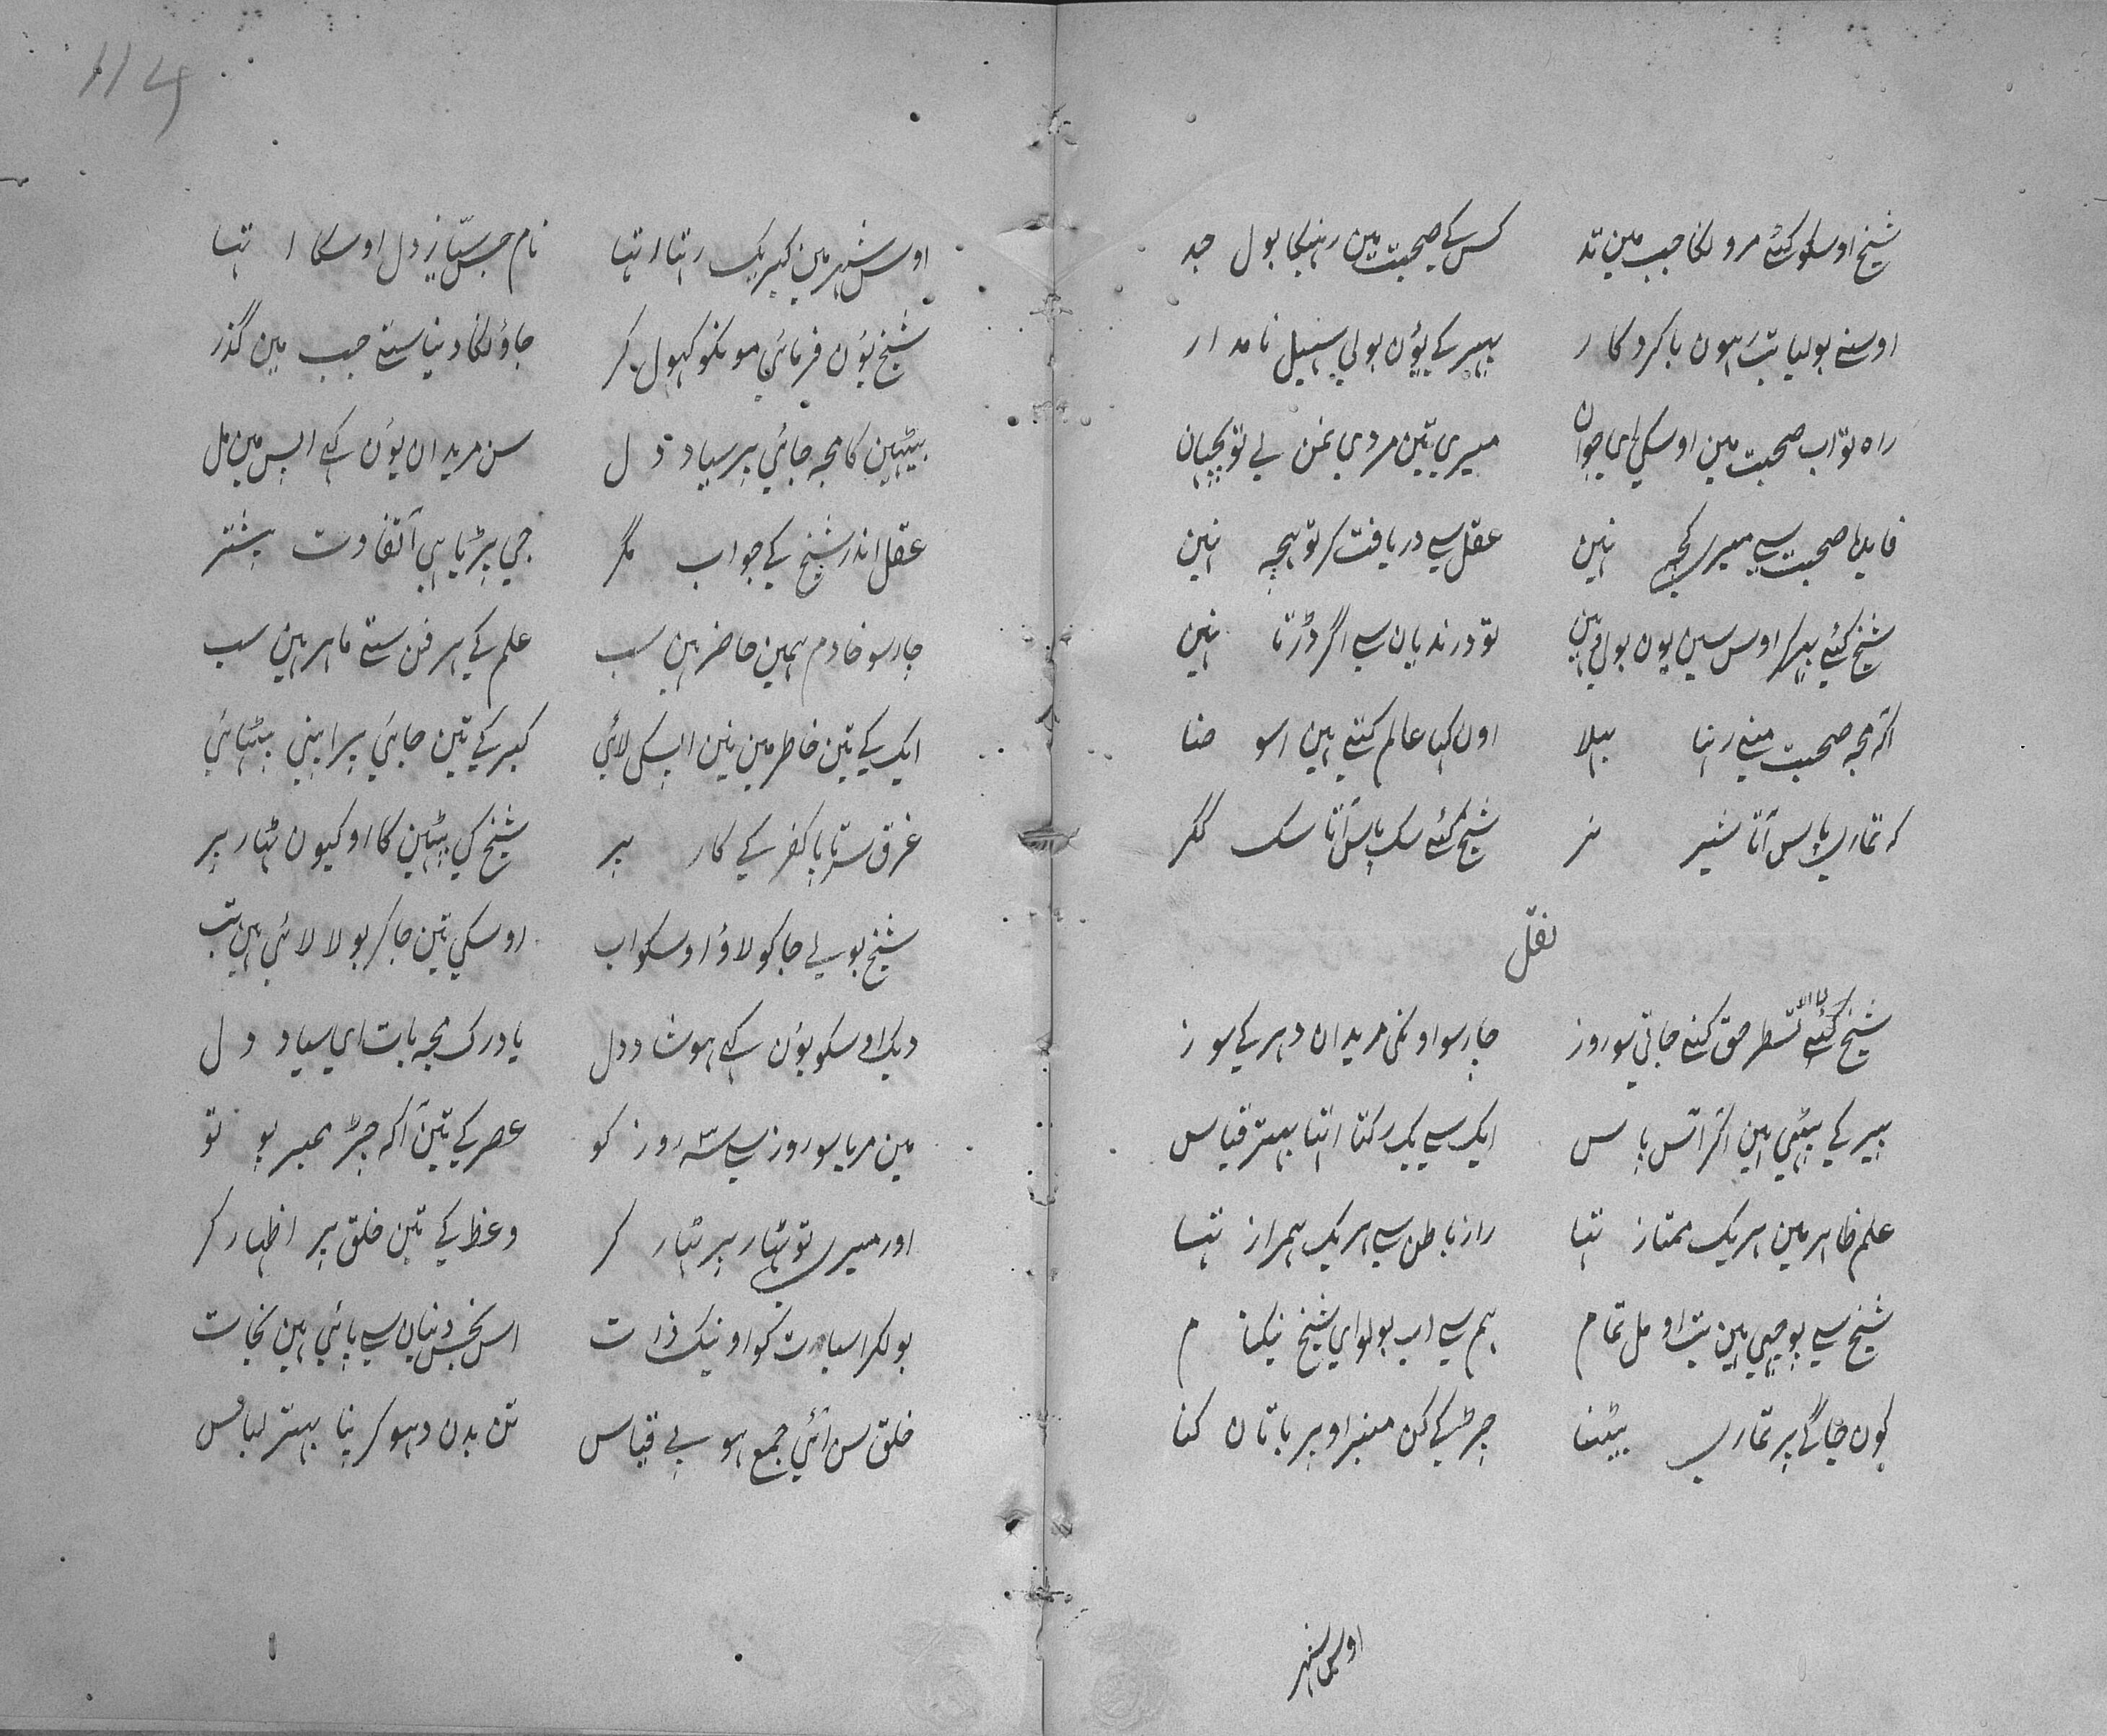 شیخ اوسکو کئے مرونکا جب مین تد کس کے صحبت مین رہنیکا بول جد
اوسنے بولیا تب ہون باکردکار بہیر کے یون بولے سہیل نامدار
راہ تو اب صحبت مین اوسکی ای جوان میری تین مردی نمن لے تو پچہان
فایدا صحبت سے میری کجہ نہین عقل سے دریافت کر تو ہیچہ نہین
شیخ کئے بہر اوس سین یون بولے ہین تو درندیان سے اگر ڈرتا نہین
اکر مجہ صحبت منے رہنا بہلا اون کہا عالم کتے ہین اسو ضنا
کہ تماری پاس آتا شیر نر شیخ کئے سک پاس آتا سک مگر
نقل
شیخ کئے تستر طرحق کنے جاتی سو روز چار سو اونکی مریدان دہر کے سوز
پیر کے بیٹھے ہین اکر آس پاس ایک سے یک رکتا اتہا بہتر قیاس
علم ظاہر مین ہر یک ممتاز تہا راز باطن سے ہر یک ہمراز تہا
شیخ سے پوچہی ہین تب او مل تمام ہم سے اب بولو ای شیخ نیکنام
کون جاگے پر تماری بیٹہنا چڑکے کن منبر اوپر باتان کنا
اوس شہر
اوس شہر مین کبر یک رہتا اتہا نام جس شاذ دل اوسکا اتہا
شیخ یون فرمائی مونکو کہول کر جاؤنگا دنیا ستے جب مین گذر
بیٹہین کا مجہ جائی پر سیاد دل سن مریدان یون کہے اپس مین مل
عقل اندر شیخ کے جواب مگر جی پڑیا ہی آتفاوت بیشتر
چار سو خادم ہمین حاضر ہین سب علم کے ہر فن ستے ماہر ہین سب
ایک کے تین خاطر مین نین اپسکی لائی کبر کے تین جائی پر اپنی بٹہائی
غرق سر تا پا کفر کے کار پر شیخ کی بیٹہین کا او کیون ٹہار پر
شیخ بولے جاکو لاؤ اوسکو اب اوسکی تین جاکر بولا لائی ہین تب
دیک اوسکو یون کہے ہو شاد دل یاد رک مجہ بات ای سیاد دل
مین مریا سو روز سے سہ روز کو عصر کے تین آکہ چڑ ممبر پو تو
اور میری تو ٹہار پر ٹہار کر وعظ کے تین خلق پر اظہار کر
بولکر اسبات کو او نیک ذات اس نجس دنیان سے پائی ہین نجات
خلق سن آئی جمع ہو بے قیاس تن بدن دہو کر پنا بہتر لباس